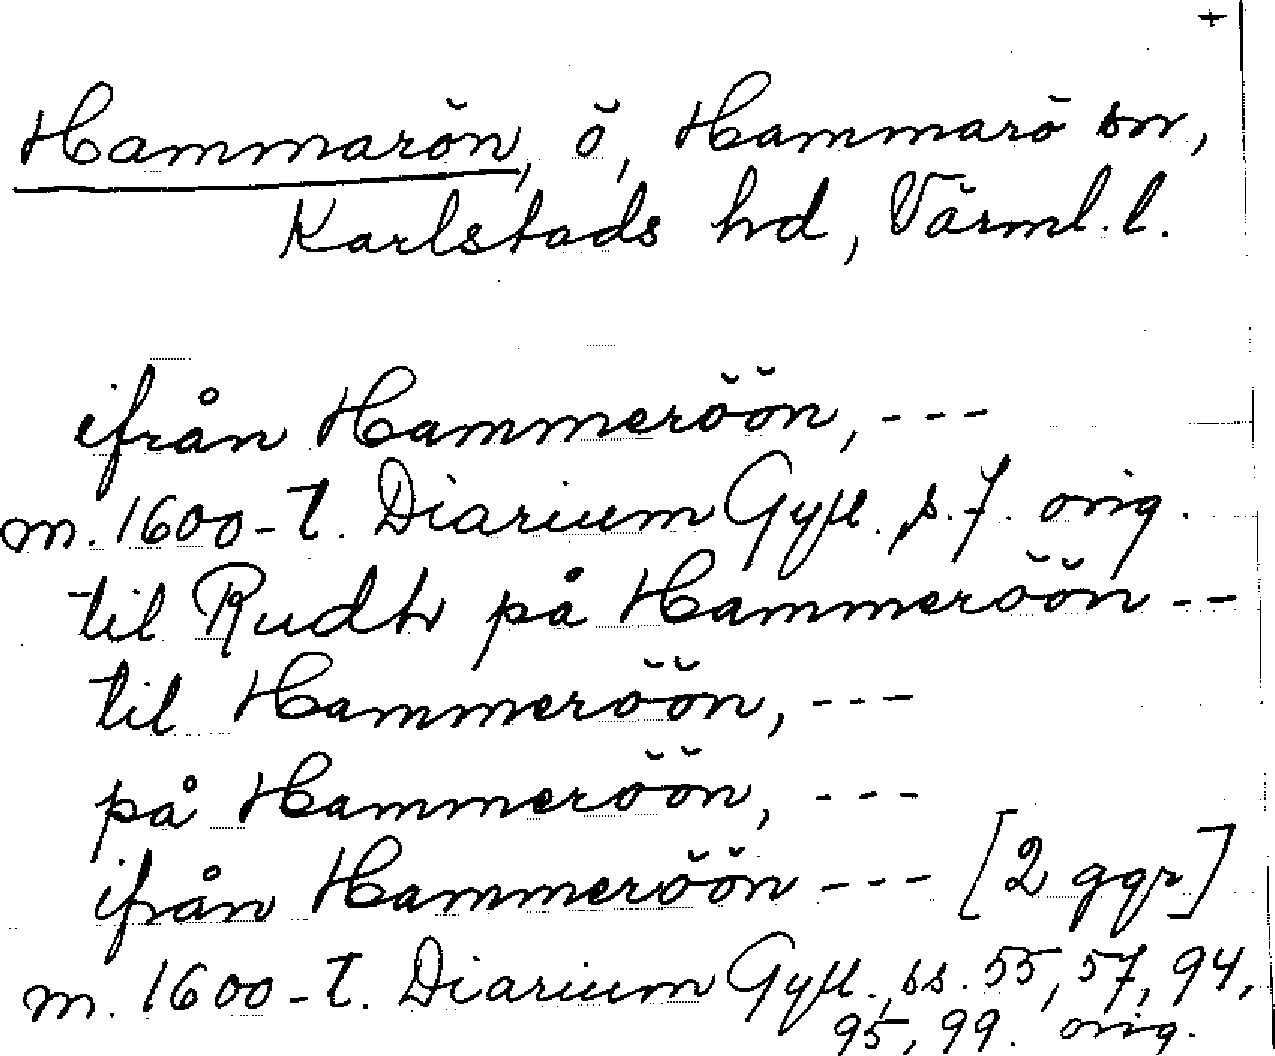 +
Hammarön, ö, Hammarö sn,
Karlstads hd, Värml. l.
ifrån Hammeröön, ---
m. 1600-t. Diarium Gyll. s. 7. orig.
til Rudh på Hammeröön --
til Hammeröön, ---
på Hammeröön, ---
ifrån Hammeröön --- [2 ggr]
m. 1600-t. Diarium Gyll., ss. 55, 57, 94,
95, 99. orig.